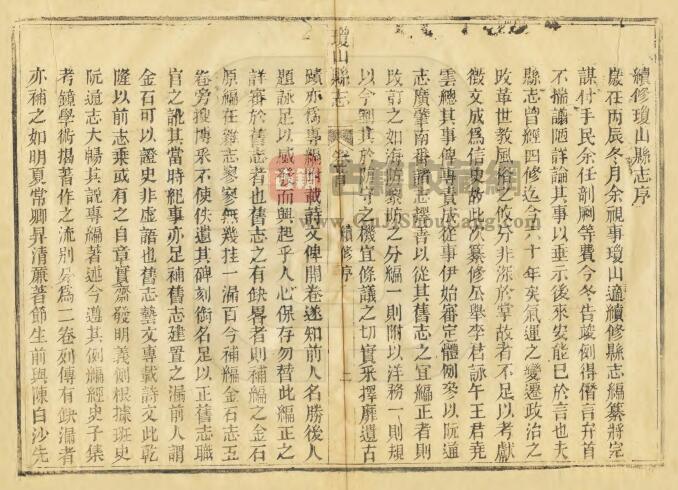 續修瓊山縣志序
歲在丙辰冬月余視事瓊山適續修縣志編纂將完
謀付手民余任剞劂等費今冬告竣例得僭言弁首
不揣譾陋詳論其事以垂示後來安能已於言也夫
縣志曾經四修迄今六十年矣氣運之變遷政治之
改革世教風俗之攸分非深於掌故者不足以考獻
徵文成爲信史故此次纂修公舉李君詠午王君堯
雲總其事俾專責成從事伊始審定體例參以阮通
志廣肇南番諸志擇善以從其舊志之宜編正者則
改訂之如海防寮坊之分編一則附以洋務一則規
以今制其於之機宜條議之切實采擇靡遺古
瓊山縣志 卷首 續修序 一
蹟亦爲專編附載詩文俾開卷遂知前人名勝後人
題詠足以感而興起乎人心保存勿替此編正之
詳審於舊志者也舊志之有缺畧者則補編之金石
原編在雜志寥寥無幾挂一漏百今補編金石志五
卷旁搜博采不使佚遺其碑刻銜名足以正舊志職
官之訛其當時紀事亦足補舊志建置之漏前人謂
金石可以證史非虛語也舊志藝文專載詩文此乾
隆以前志乘或有之自章實齋發明義例根據班史
阮通志大暢其說專編著述今遵其例編經史子集
考鏡學術揭著作之流別分爲二卷列傳有缺漏者
亦補之如明夏常卿昇清廉著節生前與陳白沙先
古籍收藏網
www.GuJiShouCang.com